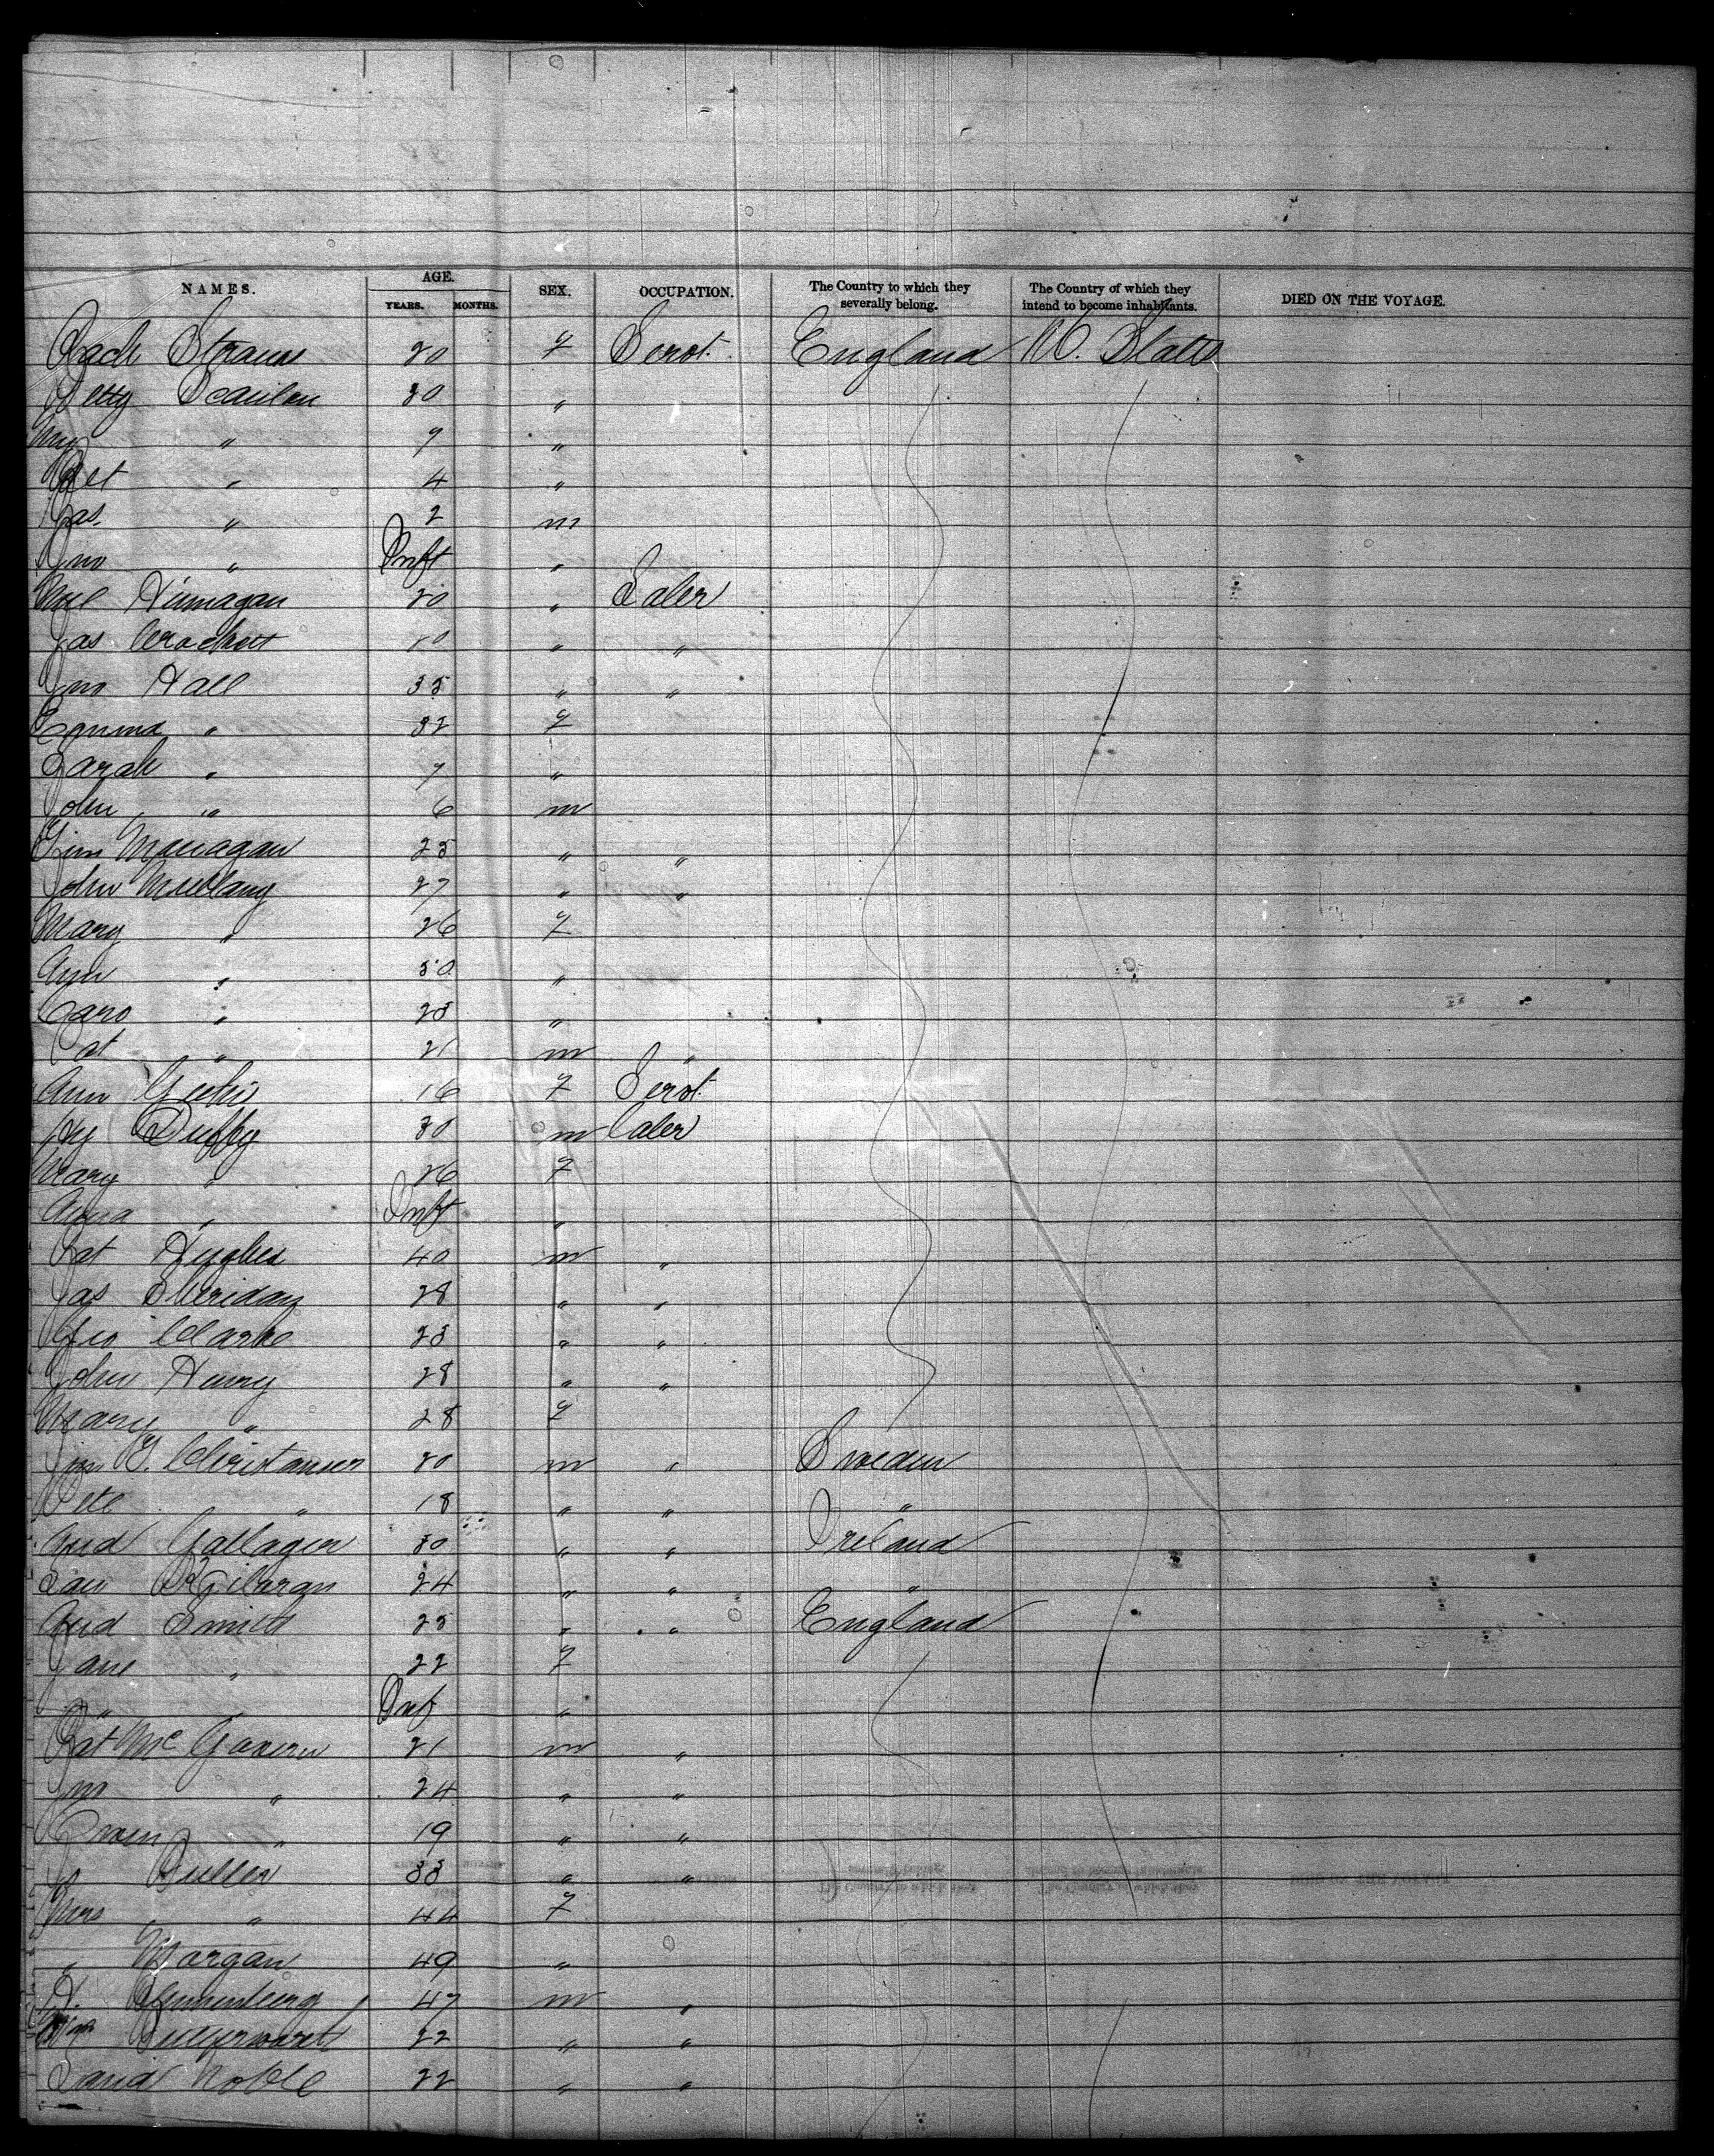 NAMES. AGE. YEARS. MONTHS. SEX. OCCUPATION. The Country to which they severally belong. The Country of which they intend to become inhabitants. DIED ON THE VOYAGE.
Rach Strauss 20 f Servt. England U. States
Betty Scanlan 30 "
My " 9 "
Bet " 4 "
Jas. " 2 m
Jno " Inft "
20 " Labr
Jas Crockett "  "
Jno Hall 35 " "
Emma " 32 f
Sarah " 7 "
John " 6 m
Tim Managan 25 " "
John Mullany 27 " "
Mary " 26 f
Ann " 50 "
Caro " 23 "
Pat " 21 m "
Ann 16 f Servt.
Hy Duffy 30 m Labr
Mary " 26 f
Anna " Inft "
Pat Hughes 40 m "
Jas Sheridan 28 " "
Geo Clarke 23 " "
John Henry 28 " "
Mary " 28 f
Jno G. Christansen 30 m " Sweden
Pete " 18 " " "
And Gallager 30 " " Ireland
24 " " "
And Smith 25 " " England
Jane " 22 f
" " Inf "
Pat McGovern 21 m "
Jno " 24 " "
Owen " 19 " "
Jo Buller 33 " "
Mrs " 44 f
" Morgan 49 "
H. 47 m "
22 " "
David Noble 22 " "